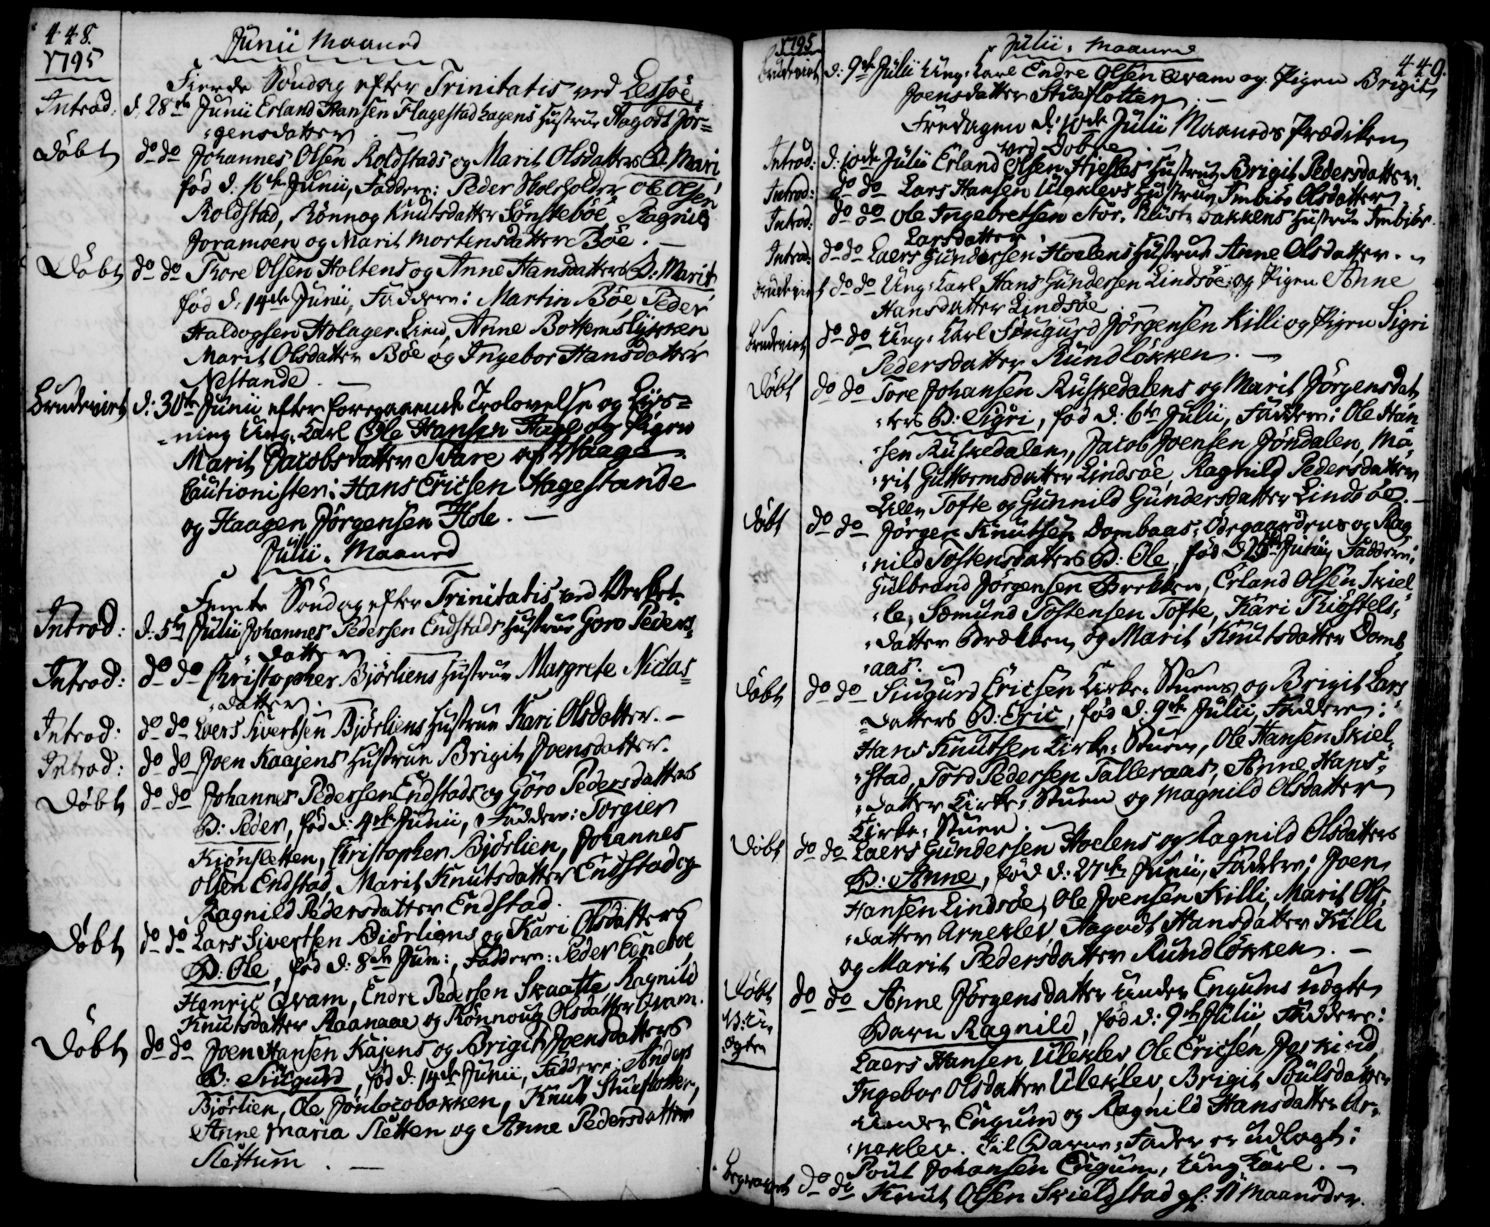 448.
1795
Junii Maaned
Fierde Søndag efter Trinitatis ved Lessøe.
Introd: d. 28de Junii Erland Hansen Flagestad hagens Hustrue Aagodt Jør=
gensdatter.
Døbt do do Johannes Olsen Roldstads og Marit Olsdatters B. Mari
fød d: 16de Junii, Faddere: Peder Skoleholder Ole Olsen
Roldstad, Rønnog Knutsdatter Sønstebøe Ragnild
Joramoen og Marit Mortensdatter Bøe. —
Døbt do do Tore Olsen Holtens og Anne Hansdatters B: Marit
fød d: 14de Junii, Faddere: Martin Bøe, Peder
Haldogsen Holager Lind, Anne Bottemslykken
Marit Olsdatter Bøe og Ingebor Hansdatter
Nestande. —
Brudeviet d: 30te Junii efter foregaaende Trolovelse og Lys=
ning Ung: Karl Ole Hansen Hage og Pigen
Marit Jacobsdatter Bare af Waage
Cautionister: Hans Ericsen Hagestande
og Haagen Jørgensen Hole. —
Julii: Maaned
Femte Søndag efter Trinitatis ved Verket.
Introd: d: 5te Julii Johannes Pedersen Endstads Hustrue Goro Peders
datter
Introd: do do Christopher Bjørliens Hustrue Margrete Niclas=
datter. —
Introd: do do Laers Sivertsen Bjørliens Hustrue Kari Olsdatter. —
Introd: do do Joen Kaajens Hustrue Brigit Joensdatter.
Døbt do do Johannes Pedersen Endstads og Goro Pedersdatters
B: Peder, fød d: 4de Junii, Faddere: Torgier
Kiønsletten, Christopher Bjørlien, Johannes
Olsen Endstad, Marit Knutsdatter Endstad og
Ragnild Pedersdatter Endstad.
Døbt do do Lars Sivertsen Bjørliens og Kari Olsdatters
B: Ole, fød d: 8de Jun:, Faddere: Peder Eneboe
Henric Qvam, Endre Pedersen Skaatte Ragnild
Knutsdatter Raanaae og Rønnoug Olsdatter Qvam.
Døbt do do Joen Hansen Kajens og Brigit Joensdatters
B: Siugurd, fød d: 14de Junii, Faddere: Anders
Bjørlien, Ole Jønlocobakken, Knut Stueflotten,
Anne Maria Sletten og Anne Pedersdatter
Slettum. —
1795
Julii: Maaned
449.
Brudeviet d: 9de Julii Ung: Karl Endre Olsen Qvam og Pigen Brigit
Joensdatter Stueflotten. —
Fredagen d: 10de Julii Maaneds Prædiken
ved Dovre.
Introd: d: 10de Julii Erland Olsen Hielles Hustrue Brigit Pedersdatter.
Introd: do do Lars Hansen Uleklevs Hustrue Imbiør Olsdatter
Introd: do do Ole Ingebretsen Nor: Kluste bakkens Hustrue Imbiør
Larsdatter
Introd: do do Laers Gundersen Hoelens Hustrue Anne Olsdatter.
Brudeviet do do Ung: Karl Hans Gundersen Lindsøe og Pigen Anne
Hansdatter Lindsøe
Brudeviet do do Ung: Karl Siugurd Jørgensen Killi og Pigen Sigri
Pedersdatter Rundløkken. —
Døbt do do Tore Johansen Ruskedalens og Marit Jørgensdat
ters B: Sigri, fød d: 6te Julii, Faddere: Ole Han
sen Ruskedalen, Jacob Joensen Jøndalen, Ma
rit Guttormsdatter Lindsøe, Ragnild Pedersdatter
Lille Tofte og Gunnild Gundersdatter Lindsøe. —
Døbt do do Jørgen Knutsen Dombaas: Odegaardens og Rag
nild Tostensdatters B: Ole, fød d 28de Junii, Faddere:
Gulbrand Jørgensen Brekken, Erland Olsen Skiel
le, Sæmund Tostensen Tofte, Kari Triøstels
datter Brækken, og Marit Knutsdatter Domb
aas. —
Døbt do do Siugurd Ericsen Kirke: Stuens og Brigit Lars
datters B: Eric, fød d: 9de Julii, Faddere:
Hans Knutsen Kirke: Stuen, Ole Hansen Skiel
stad, Tord Pedersen Talleraas, Anne Hans=
datter Kirke: Stuen og Magnild Olsdatter
Kirke: Stuen. —
Døbt do do Laers Gundersen Hoelens og Ragnild Olsdatters
B: Anne, fød d: 27de Junii, Faddere: Joen
Hansen Lindsøe, Ole Joensen Killi, Marit Ols
datter Arneklev, Aagodt Hansdatter Killi
og Marit Pedersdatter Rundløkken. —
Døbt do do Anne Jørgensdatter under Engums uægte
B: Uægten Barn Ragnild, fød d: 9de Julii Faddere:
Laers Hansen Uleklev Ole Ericsen
Ingebor Olsdatter Uleklev, Brigit Poulsdatter
under Engum og Ragnild Hansdatter Ar=
neklev. Til Barne: Fader er udlagt:
Poul Johansen Engum, Ung: Karl. —
Begravet do do Knut Olsen Skielstad gl: 11 Maaneder.